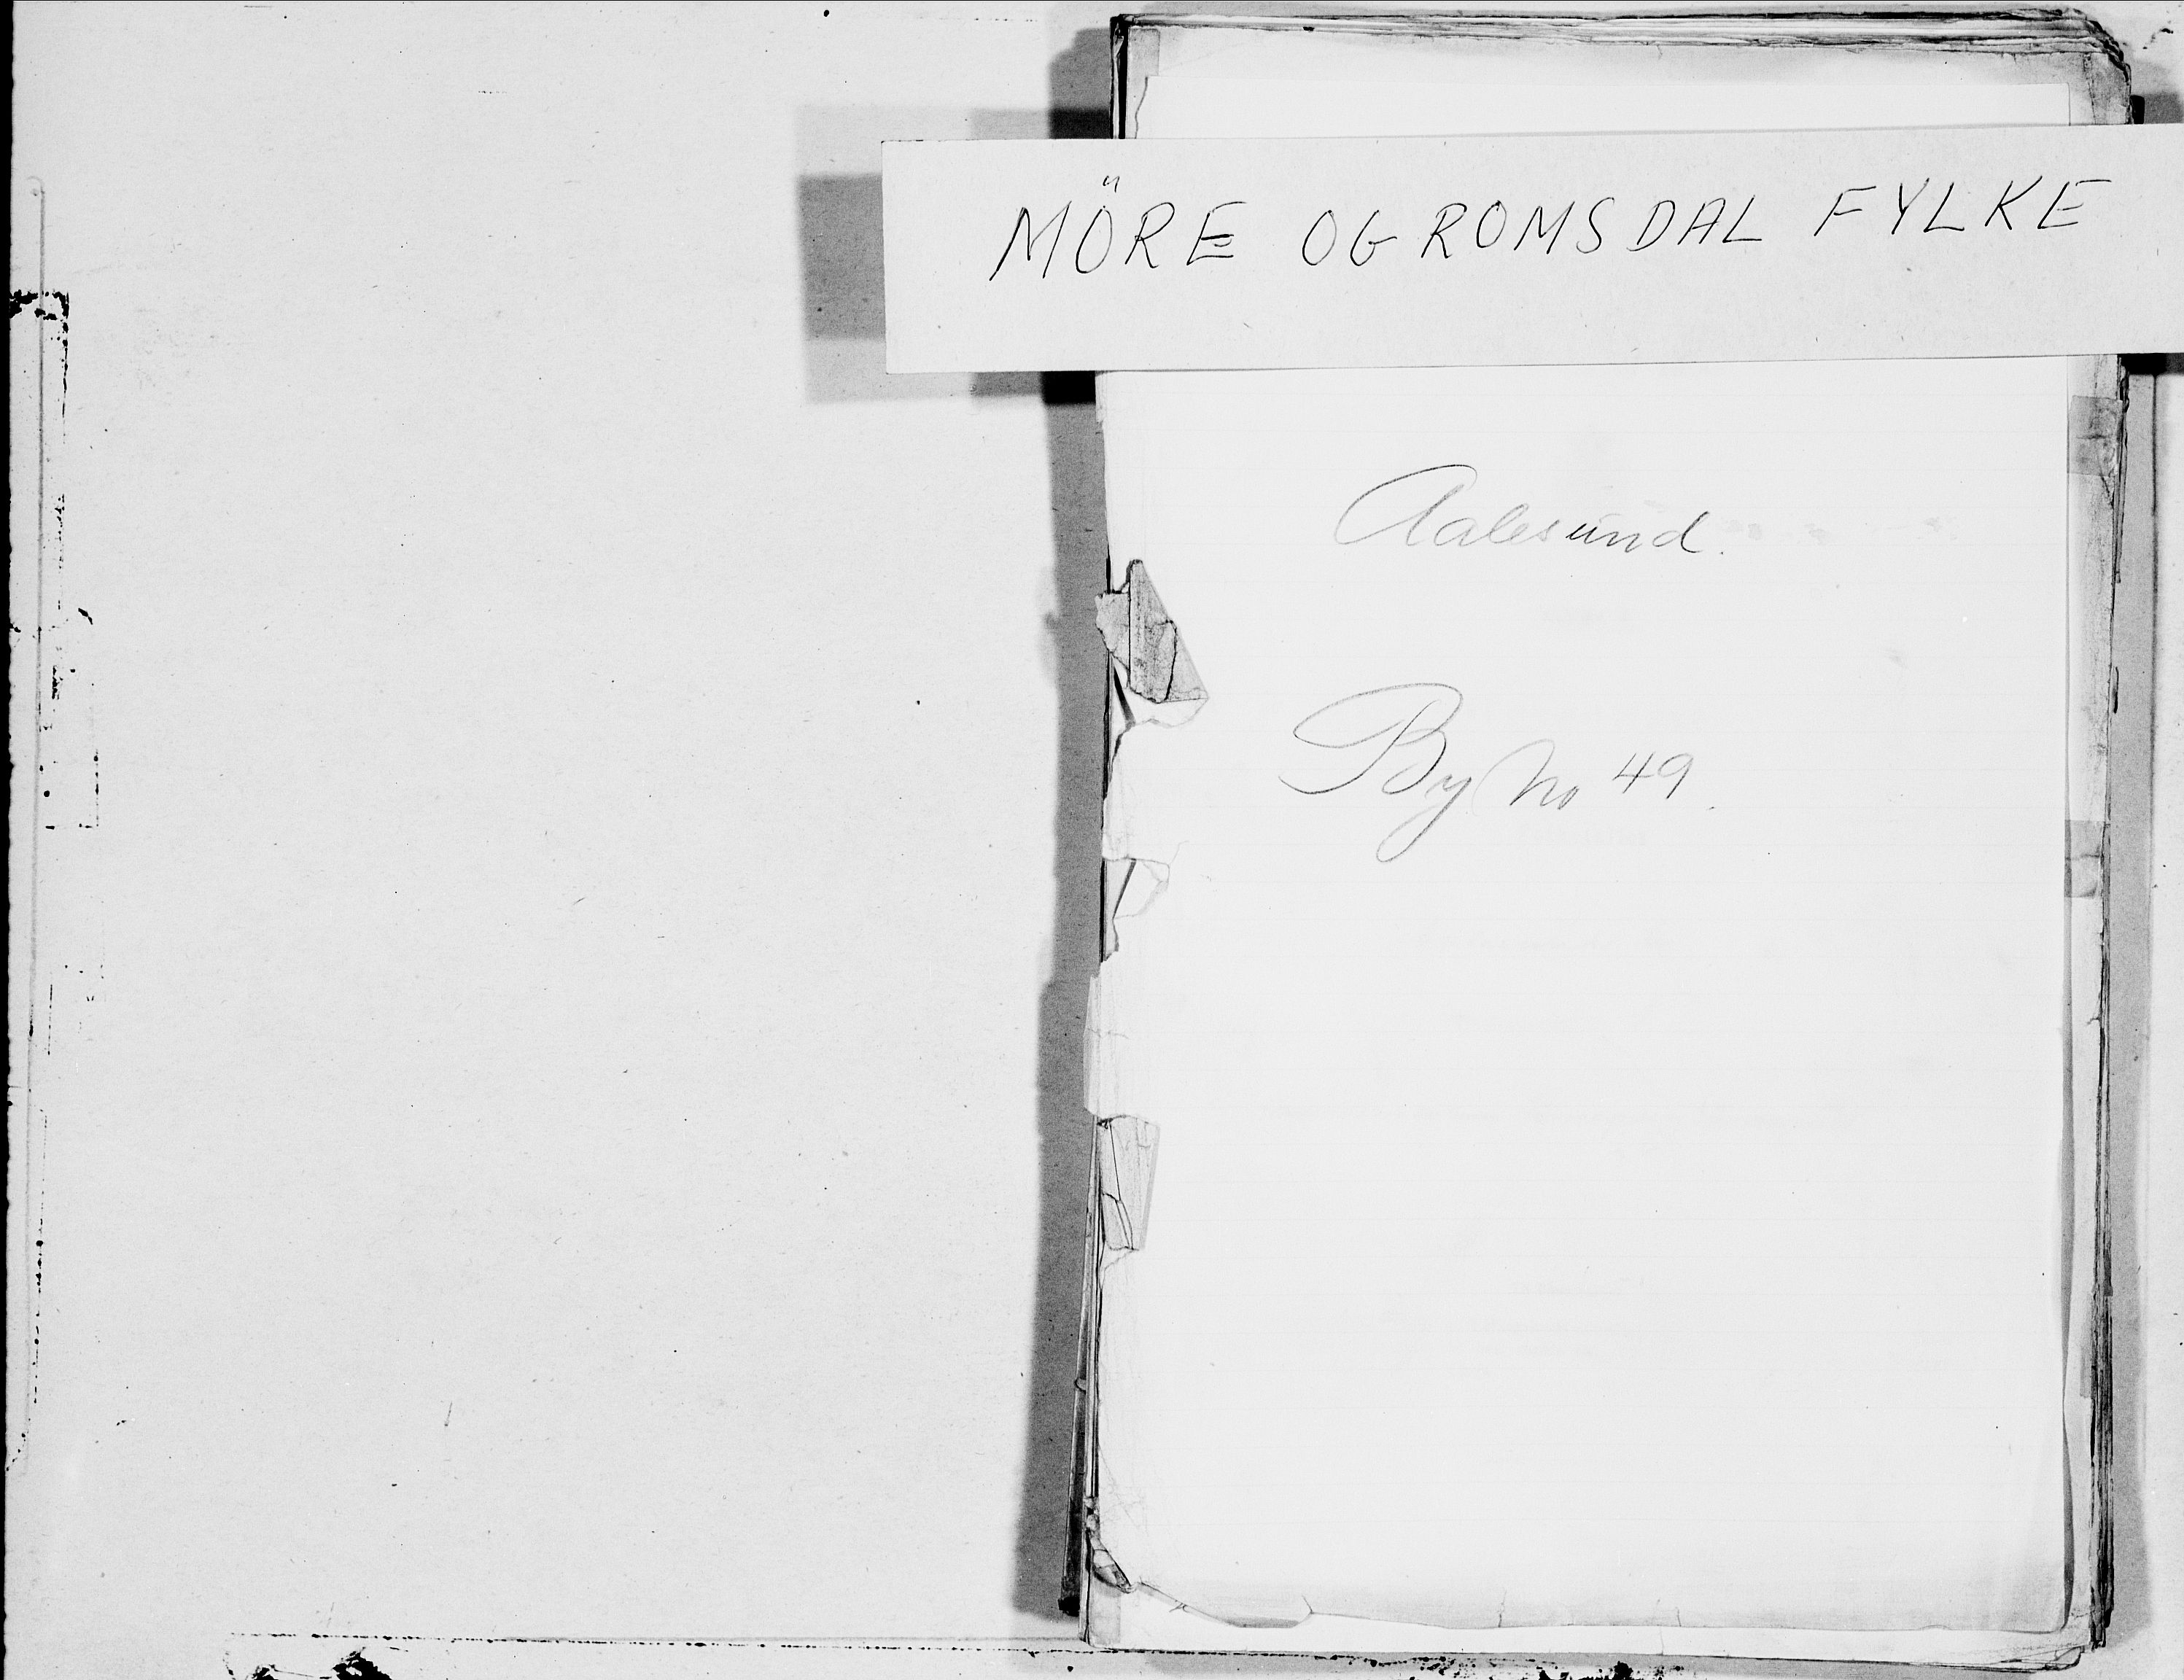 MÖRE OG ROMSDAL FYLKE
Aalesund.
By No 49.